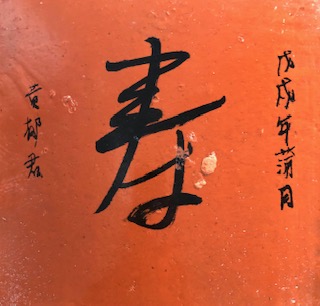 戊戌年蒲月
寿
黄郁君